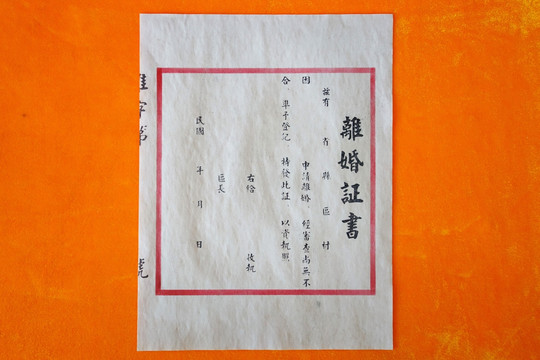 離婚証書
茲有 省 縣 區 村
因 申請離婚，經審查尚無不
合，準予登記 特發此証 以資執照
右給 收執
區長
民國 年 月 日
字第 號